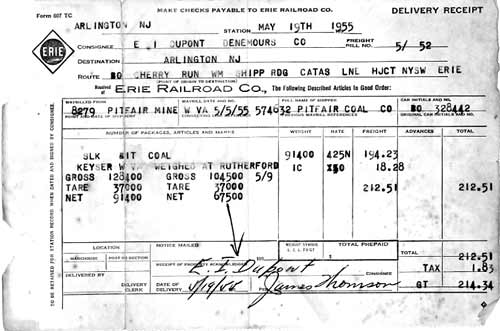 Form 607 TC
MAKE CHECKS PAYABLE TO ERIE RAILROAD CO.
DELIVERY RECEIPT
ARLINGTON NJ
STATION MAY 19TH 1955
ERIE
CONSIGNEE E I DUPONT DENEMOURS CO
FREIGHT BILL NO. 5/ 52
DESTINATION ARLINGTON NJ
ROUTE BO CHERRY RUN WM SHIPP RDG CATAS LNE HJCT NYSW ERIE
Received of ERIE RAILROAD CO., The Following Described Articles in Good Order:
(POINT OF ORIGIN TO DESTINATION)
WAYBILLED FROM WAYBILL DATE AND NO. FULL NAME OF SHIPPER CAR INITIALS AND NO.
8279 PITFAIR MINE W VA 5/5/55 574632 PITFAIR COAL CO BO 328442
POINT AND DATE OF SHIPMENT PREVIOUS WAYBILL REFERENCES ORIGINAL CAR INITIALS AND NO.
NUMBER OF PACKAGES, ARTICLES AND MARKS WEIGHT RATE FREIGHT ADVANCES TOTAL
SLK BIT COAL 91400 425N 194.23
KEYSER W VA WEIGHED AT RUTHERFORD 1C 18.28
GROSS 128400 GROSS 104500 5/9
TARE 37000 TARE 37000 212.51 212.51
NET 91400 NET 67500
LOCATION NOTICE MAILED TOTAL PREPAID
WAREHOUSE POST OR SECTION
TOTAL 212.51
E. I. Dupont
CONSIGNEE
TAX 1.83
DELIVERED BY DELIVERY CLERK DATE OF DELIVERY 5/19/55 James Thomson GT 214.34
TO BE RETAINED FOR STATION RECORD WHEN DATED AND SIGNED BY CONSIGNEE.